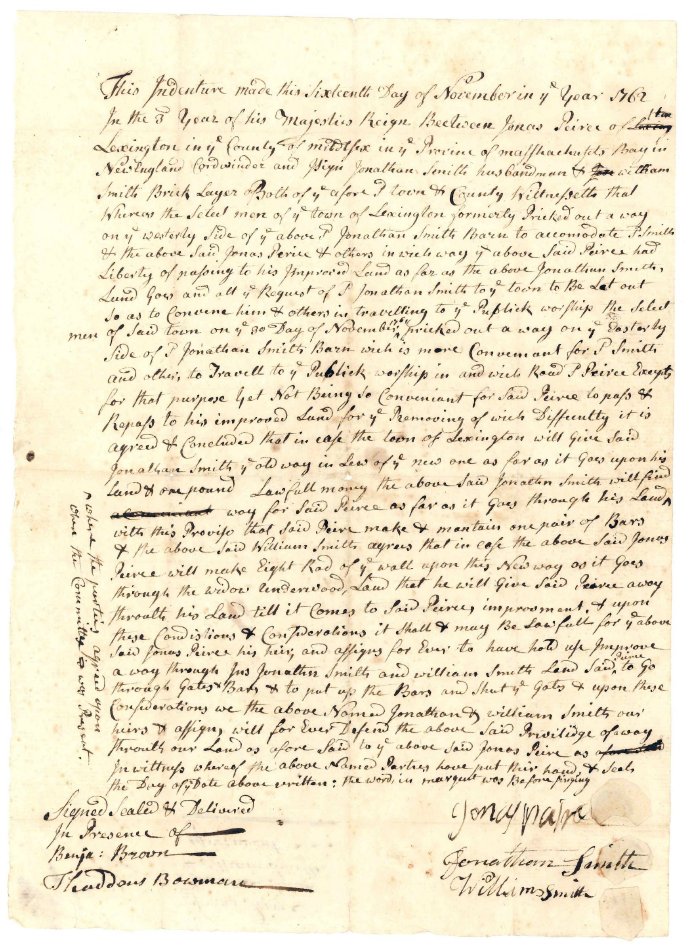 This Indenture made this Sixteenth Day of November in ye Year 1762
In the 3d Year of his Majesties Reign Beetween Jonas Peirce of
Lexington in ye County of middlsex in ye Province of massachusets Bay in
New England Cordwinder and Jonathan Smith husbandman & william
Smith Brick Layer Both of ye afore sd town & County Wittnesseth that
Whereas the Select men of ye town of Lexington formerly Pricked out a way
on ye westerly Side of ye above sd Jonathan Smith Barn to accomodate sd Smith
& the above Said Jonas Peirce & others in wich way ye above Said Peirce had
Liberty of passing to his Improved Land as far as the above Jonathan Smiths
Land Goes and att ye Request of sd Jonathan Smith to ye town to Be Let out
So as to Convene him & others in travelling to ye Publick worship the Select
men of Said town on ye 30 Day of November pricked out a way on ye Easterly
Side of sd Jonathan Smith Barn wich is more Conveniant for sd Smith
and others to Travell to ye Publick worship in and wich Road sd Peirce Excepts
for that purpose Yet Not Being So Conveniant for Said Peirce to pass &
Repass to his improved Land for ye Removing of wich Difficulty it is
agreed & Concluded that in case the town of Lexington will Give Said
Jonathan Smith ye old way in Lew of ye new one as far as it Goes upon his
Land & one pound Lawfull money the above Said Jonathan Smith will find
way for Said Peirce as far as it Goes through his Land ^
with this Proviso that Said Peirce make & mantain one pair of Bars
& the above Said William Smith agrees that in case the above Said Jonas
Peirce will make Eight Rod of ye wall upon this New way as it Goes
through the widow Underwoods Land that he will Give Said Peirce a way
throuth his Land till it Comes to Said Peirces improvment, & upon
these Condistions & Considerations it Shall & may Be Lawfull for ye above
Said Jonas Peirce his heirs and assigns for Ever to have hold use Improve
a way through Jonathan Smiths and william Smiths Land Said Peirce to Go
through Gates & Bars & to put up the Bars and Shut ye Gates & upon these
Considerations we the above Named Jonathan & william Smith our
heirs & assigns will for Ever Defend the above Said Privilidge of way
throuth our Land as afore Said to ye above Said Jonas Peirce as
In wittness whereof the above Named Parties have put their hands & Seals
the Day of ye Date above written: the words in margent was Before signing
^ where the parties agreed upon
when the Committee was Present.
Signed Sealed & Delivered
In Presence of
Benja: Brown
Thaddous Bowman
Jonas
Jonathan Smith
William Smith